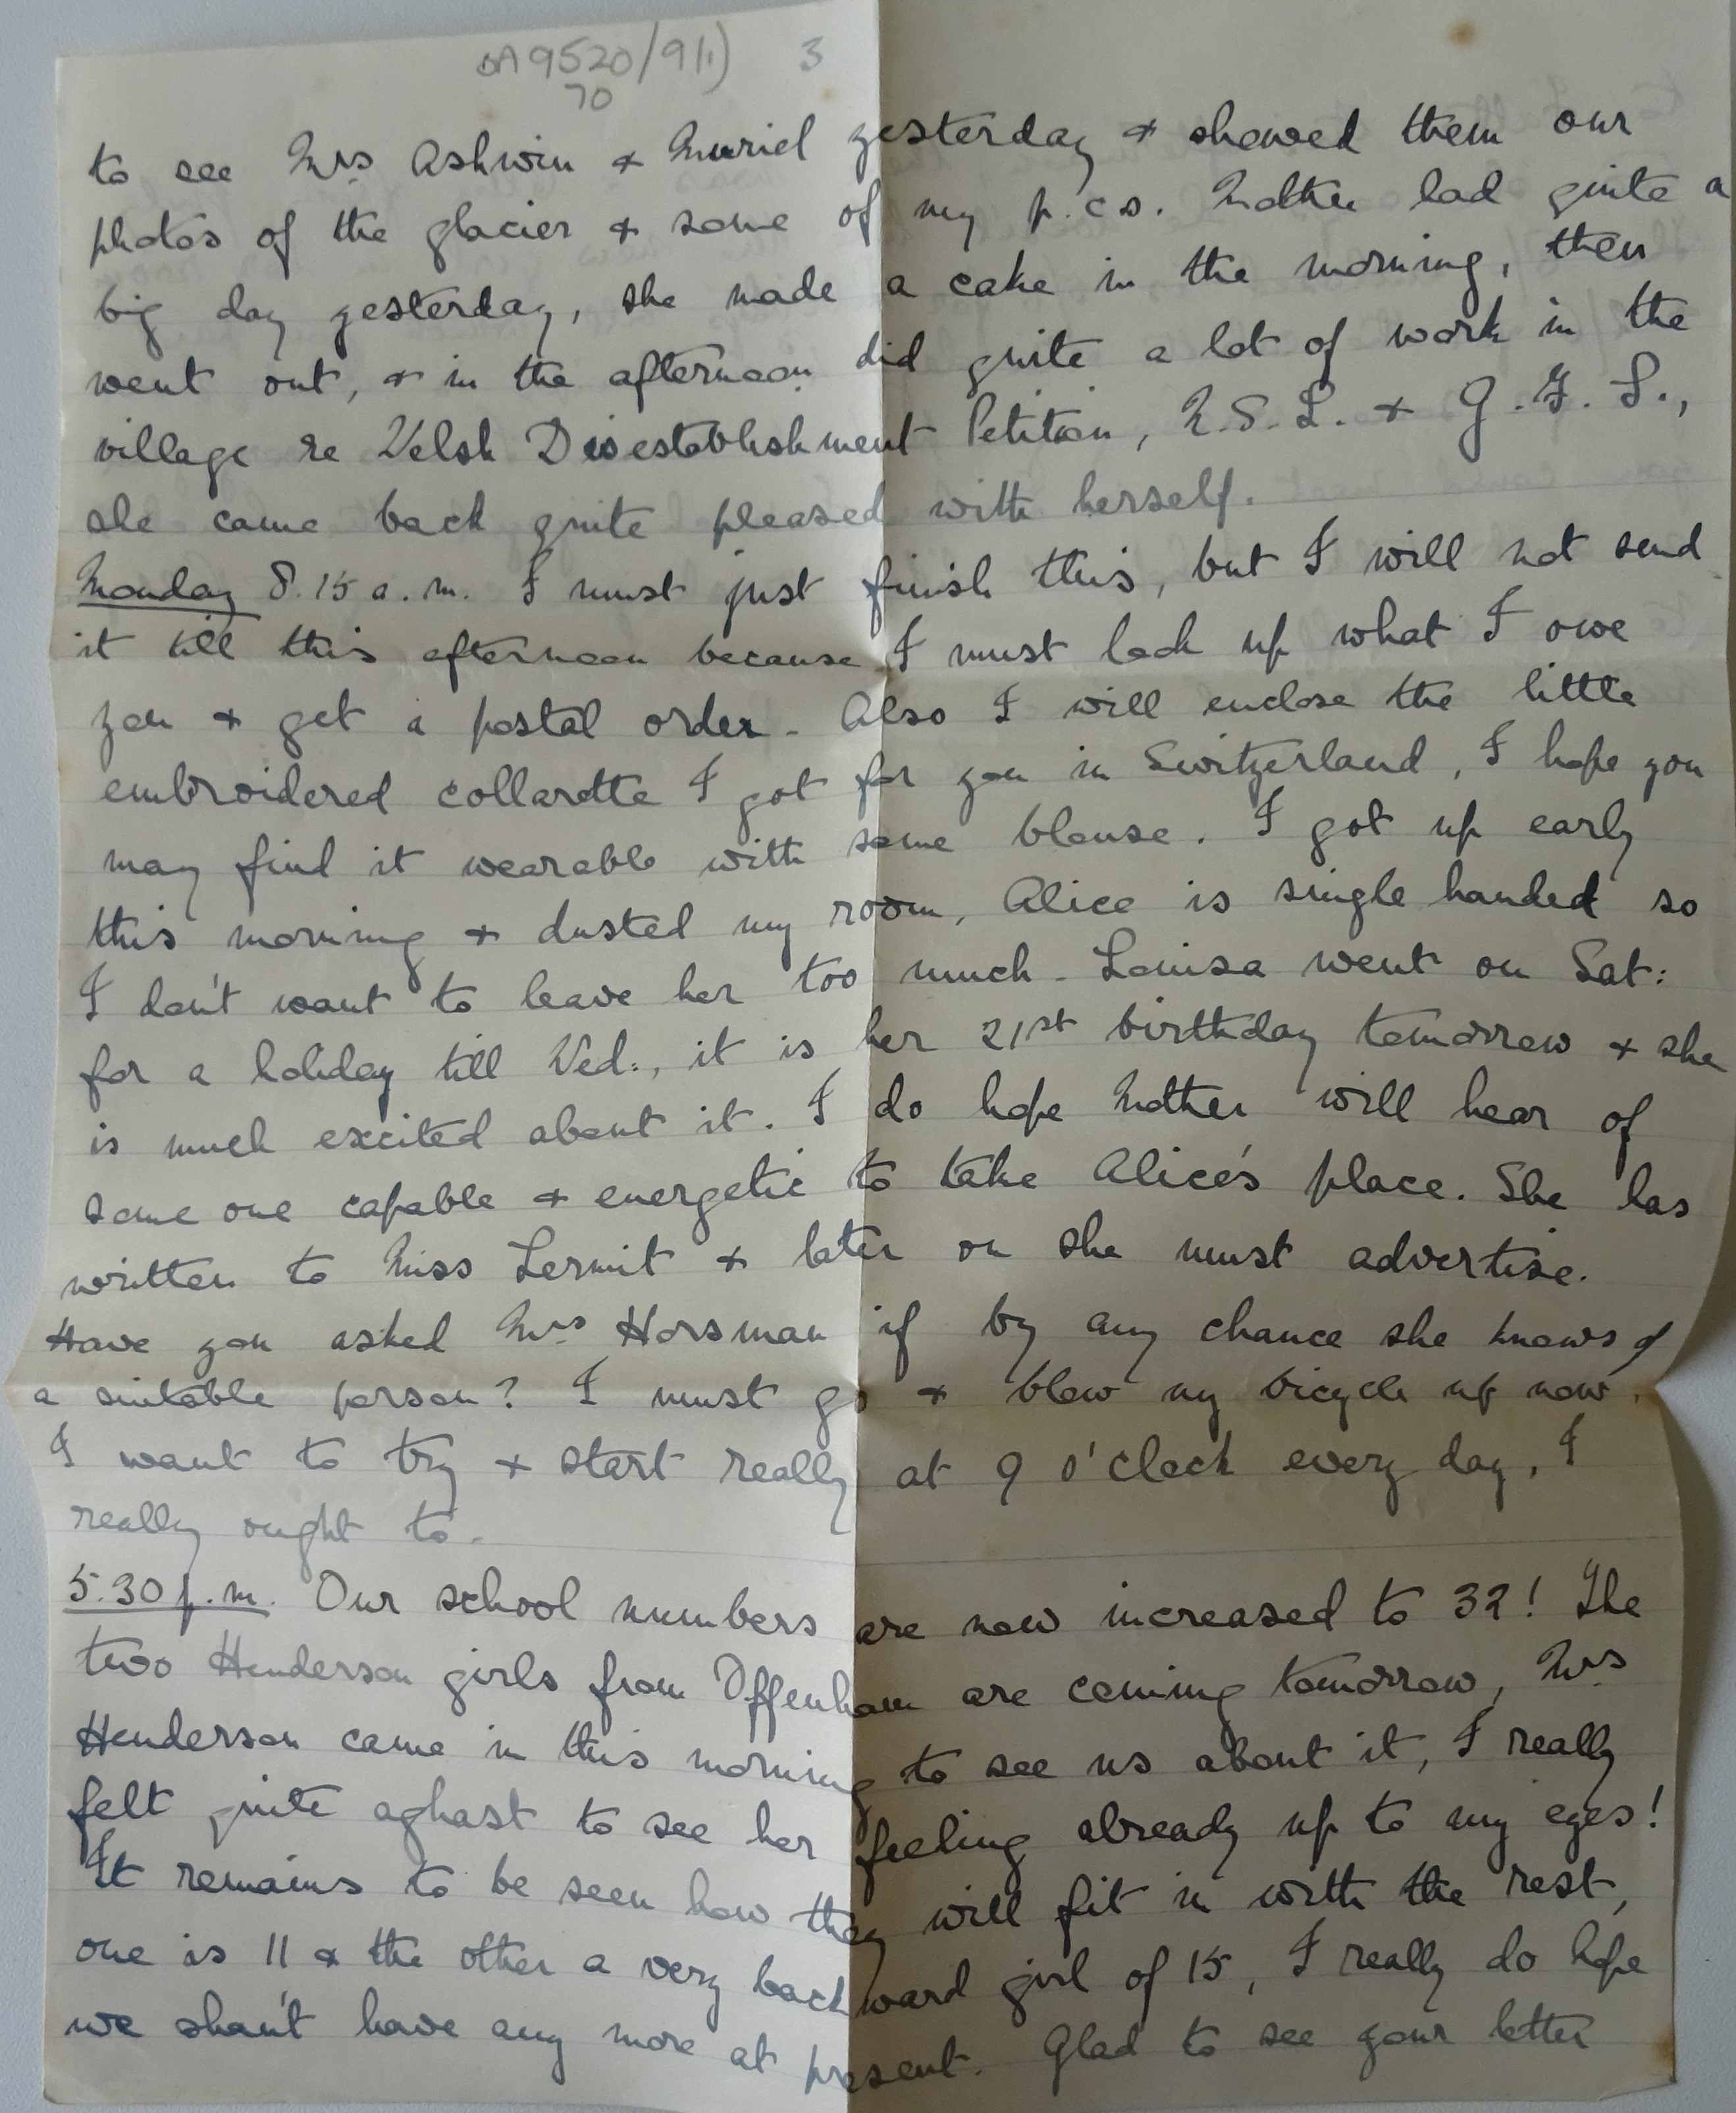 BA9520/9(1) 3
70
to see Mrs Ashwin & Muriel yesterday & showed them our
photos of the glacier & some of my p.cs. Mother had quite a
big day yesterday, she made a cake in the morning, then
went out, & in the afternoon did quite a lot of work in the
village re Welsh Disestablishment Petition, N.S.L. & G.F.S.,
she came back quite pleased with herself.
Monday 8.15 a.m. I must just finish this, but I will not send
it till this afternoon because I must look up what I owe
you & get a postal order. Also I will enclose the little
embroidered collarette I got for you in Switzerland, I hope you
may find it wearable with some blouse. I got up early
this morning & dusted my room, Alice is single handed so
I don't want to leave her too much. Louisa went on Sat:
for a holiday till Wed:, it is her 21st birthday tomorrow & she
is much excited about it. I do hope Mother will hear of
some one capable & energetic to take Alice's place. She has
written to Miss Lermit & later on she must advertise.
Have you asked Mrs Horsman if by any chance she knows of
a suitable person? I must go & blow my bicycle up now.
I want to try & start really at 9 o'clock every day, I
really ought to.
5.30 p.m. Our school numbers are now increased to 32! The
two Henderson girls from Offenham are coming tomorrow, Mrs
Henderson came in this morning to see us about it, I really
felt quite aghast to see her feeling already up to my eyes!
It remains to be seen how they will fit in with the rest,
one is 11 & the other a very backward girl of 15, I really do hope
we shan't have any more at present. Glad to see your letter